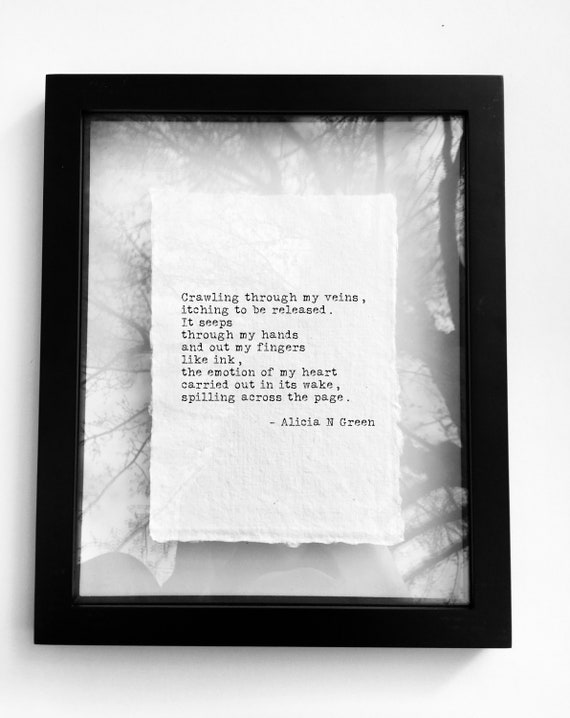 Crawling through my veins,
itching to be released.
It seeps
through my hands
and out my fingers
like ink,
the emotion of my heart
carried out in its wake,
spilling across the page.
- Alicia N Green